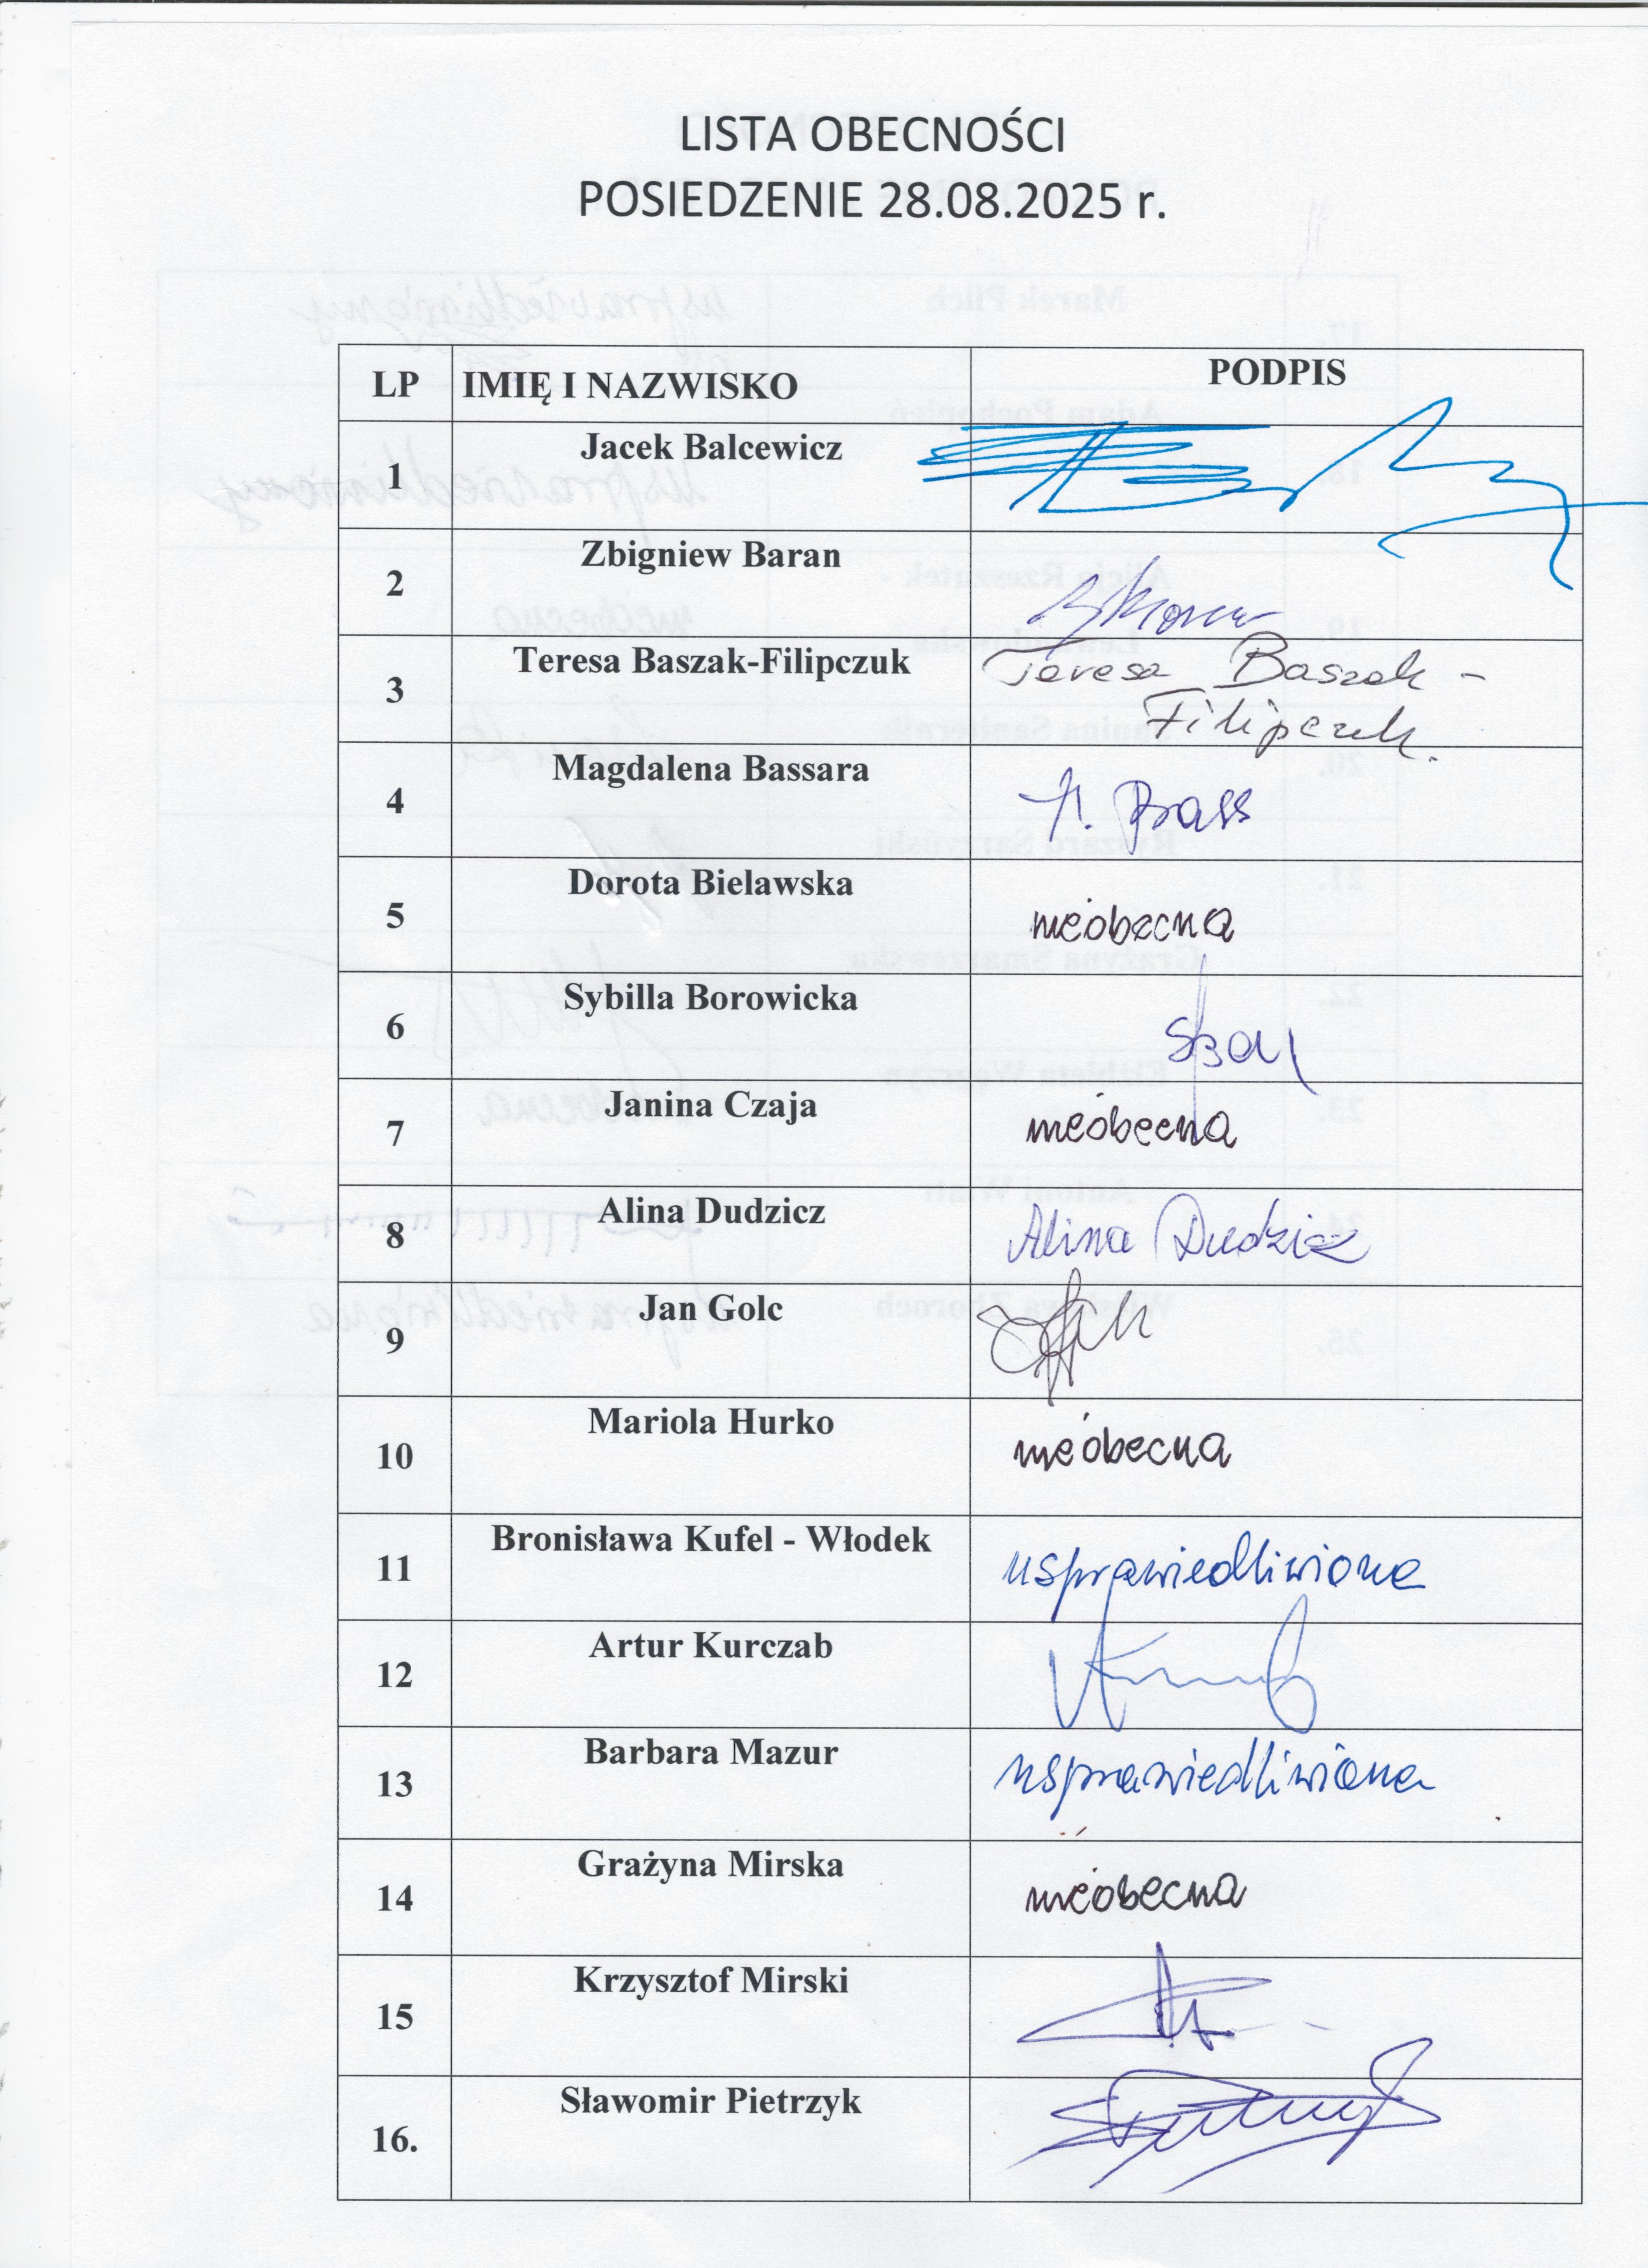 LISTA OBECNOŚCI
POSIEDZENIE 28.08.2025 r.
LP IMIĘ I NAZWISKO PODPIS
1 Jacek Balcewicz
2 Zbigniew Baran
3 Teresa Baszak-Filipczuk Teresa Baszak -
Filipczuk.
4 Magdalena Bassara
5 Dorota Bielawska nieobecna
6 Sybilla Borowicka
7 Janina Czaja nieobecna
8 Alina Dudzicz Alina Dudzicz
9 Jan Golc
10 Mariola Hurko nieobecna
11 Bronisława Kufel - Włodek usprawiedliwiona
12 Artur Kurczab
13 Barbara Mazur usprawiedliwiona
14 Grażyna Mirska nieobecna
15 Krzysztof Mirski
16. Sławomir Pietrzyk